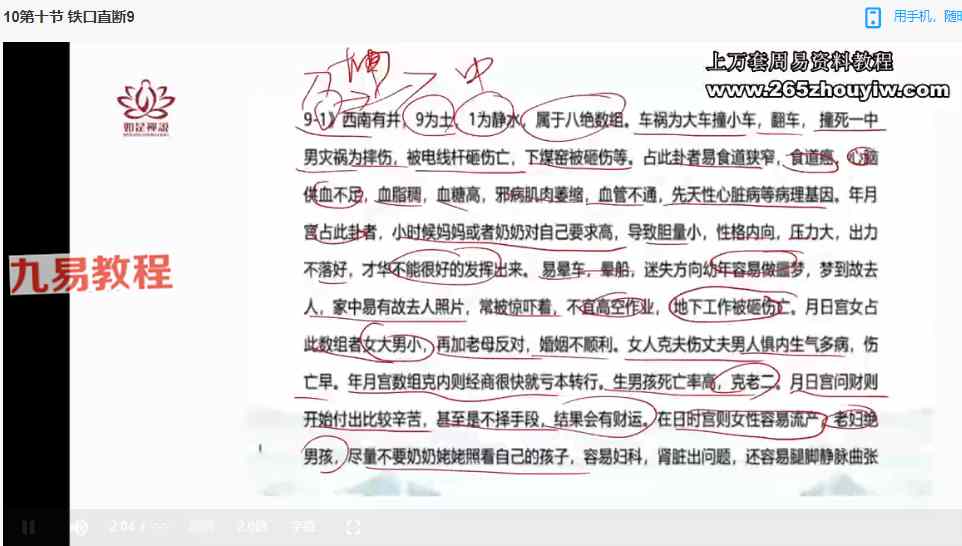 10第十节 铁口直断9
用手机，随时
中
上万套周易资料教程
www.265zhouyiw.com
如是禅说
9-1》西南有井，9为土，1为静水，属于八绝数组。车祸为大车撞小车，翻车，撞死一中
男灾祸为摔伤，被电线杆砸伤亡，下煤窑被砸伤等。占此卦者易食道狭窄，食道癌，心脑
供血不足，血脂稠，血糖高，邪病肌肉萎缩，血管不通，先天性心脏病等病理基因。年月
宫占此卦者，小时候妈妈或者奶奶对自己要求高，导致胆量小，性格内向，压力大，出力
不落好，才华不能很好的发挥出来。易晕车，晕船，迷失方向幼年容易做噩梦，梦到故去
人，家中易有故去人照片，常被惊吓着，不宜高空作业，地下工作被砸伤亡。月日宫女占
此数组者女大男小，再加老母反对，婚姻不顺利。女人克夫伤丈夫男人惧内生气多病，伤
亡早。年月宫数组克内则经商很快就亏本转行。生男孩死亡率高，克老二。月日宫问财则
开始付出比较辛苦，甚至是不择手段，结果会有财运。在日时宫则女性容易流产，老妇绝
男孩，尽量不要奶奶姥姥照看自己的孩子，容易妇科，肾脏出问题，还容易腿脚静脉曲张
九易教程
2:04
2.0倍
字幕